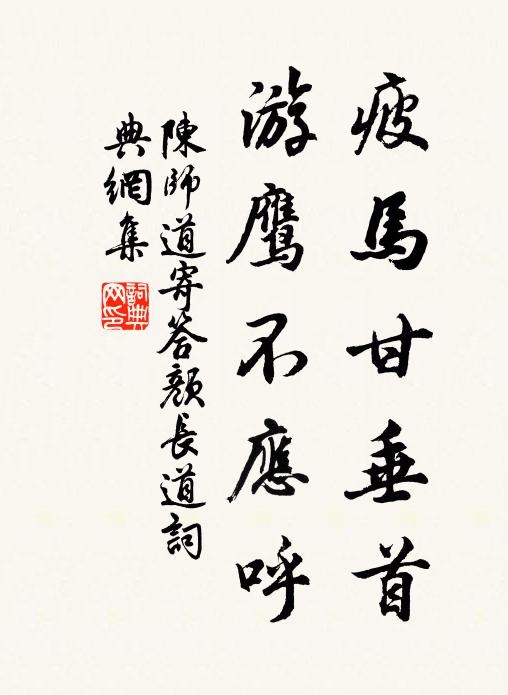 疲馬甘垂首
游鹰不應呼
陳師道寄答顏長道詞
典網集
詞典
网印